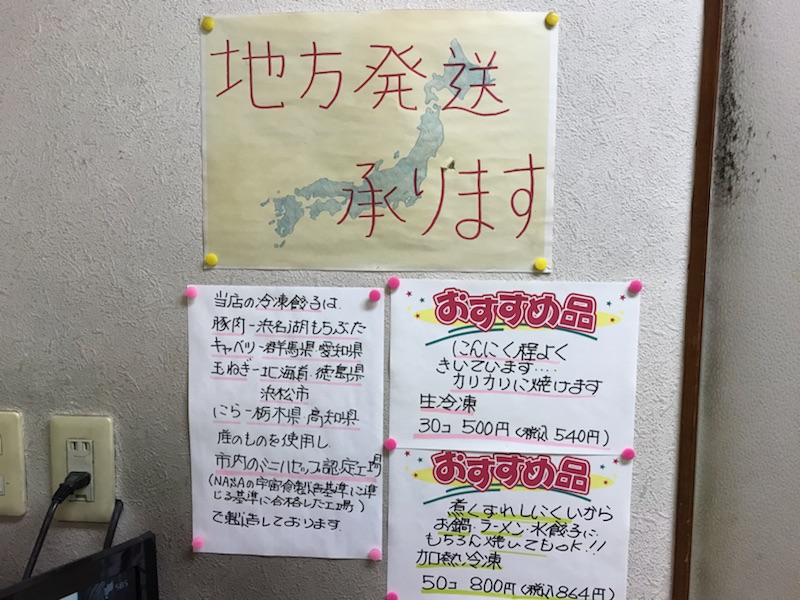 地方発送
承ります
当店の冷凍餃子は、
豚肉－浜名湖もちぶた
キャベツ－群馬県・愛知県
玉ねぎ－北海道・徳島県
浜松市
にら－栃木県・高知県
産のものを使用し
市内のミニハセップ認定工場
(NASAの宇宙食製造基準に準
じる基準に合格した工場)
で製造しております
おすすめ品
にんにく程よく
きいています....
カリカリに焼けます
生冷凍
30コ 500円(税込540円)
おすすめ品
煮くずれしにくいから
お鍋・ラーメン・水餃子に
もちろん焼いてもOK!!
加熱冷凍
50コ 800円(税込864円)